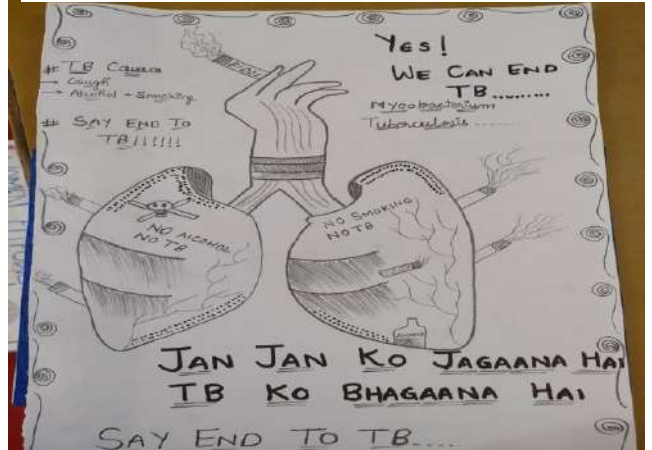 # TB Causes
→ Cough
→ Alcohol + Smoking
# SAY END TO
TB!!!!!!
YES!
WE CAN END
TB.........
Mycobacterium
Tuberculosis.......
NO ALCOHOL
NO TB
NO SMOKING
NO TB
JAN JAN KO JAGAANA HAI
TB KO BHAGAANA HAI
SAY END TO TB.....